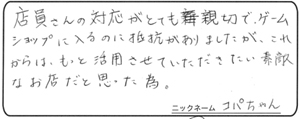 店員さんの対応がとても親切で、ゲーム
ショップに入るのに抵抗がありましたが、これ
からは、もっと活用させていただきたい素敵
なお店だと思った為。
ニックネーム コパちゃん